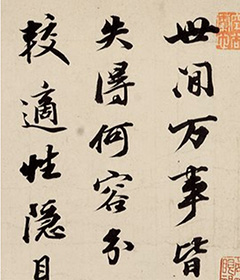 世间万事皆
失得何容分
较適性隐且